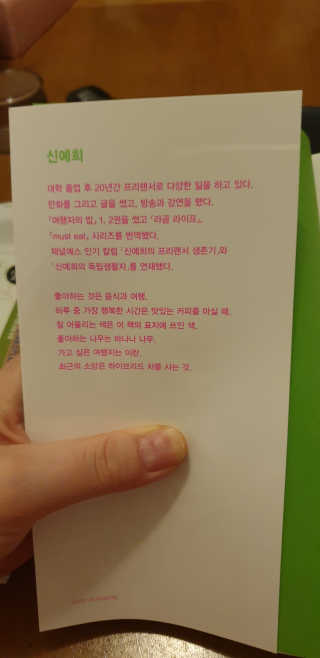 신예희
대학 졸업 후 20년간 프리랜서로 다양한 일을 하고 있다.
만화를 그리고 글을 썼고, 방송과 강연을 했다.
『여행자의 밥』 1, 2권을 썼고 『라곰 라이프』,
『must eat』 시리즈를 번역했다.
채널예스 인기 칼럼 「신예희의 프리랜서 생존기」와
「신예희의 독립생활자」를 연재했다.
좋아하는 것은 음식과 여행.
하루 중 가장 행복한 시간은 맛있는 커피를 마실 때.
잘 어울리는 색은 이 책의 표지에 쓰인 색.
좋아하는 나무는 바나나 나무.
가고 싶은 여행지는 이란.
최근의 소망은 하이브리드 차를 사는 것.